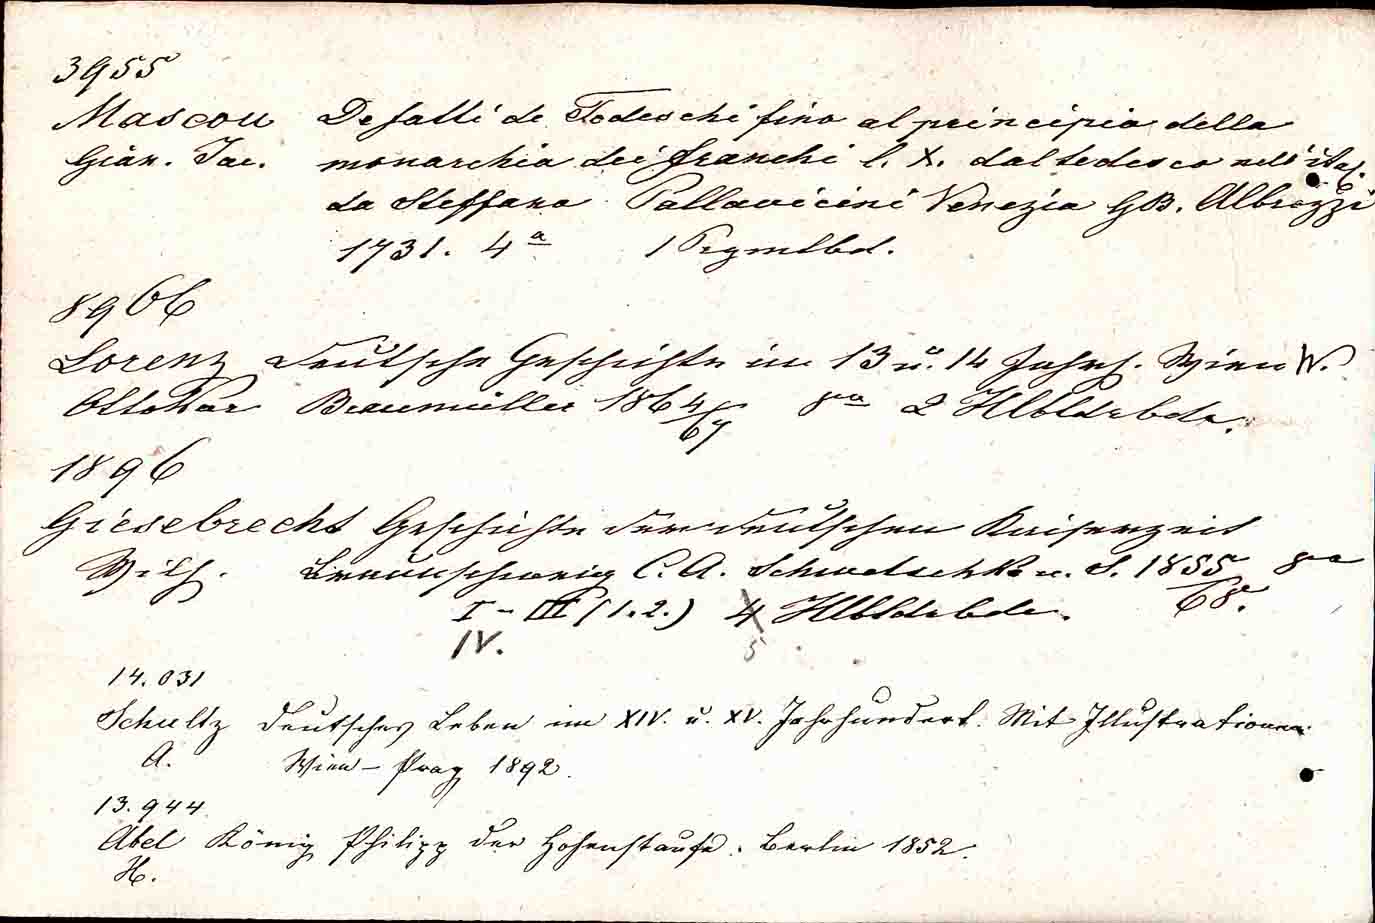 3955
Mascou De fatti de Tedeschi fino al principio della
Gian. Jac. monarchia dei franchi l. X. dal tedesco nell' ital.
da Steffano Pallavicini Venezia GB. Albrizzi
1731. 4a 1 Prgmtbd.
8966
Lorenz Deutsche Geschichte im 13 u. 14 Jahrh. Wien W.
Ottokar Braumüller 1864/67 8a 2 Hlbldrbde.
1896
Giesebrecht Geschichte der deutschen Kaiserzeit
Wilh. Braunschweig C. A. Schwetschke u. S. 1855 8a
I - III (1.2.) 4 Hlbldrbde. 68.
IV. 5
14.031
Schultz Deutsches Leben im XIV. u. XV. Jahrhundert. Mit Illustrationen.
A. Wien - Prag 1892.
13.944.
Abel König Philipp der Hohenstaufe. Berlin 1852.
H.